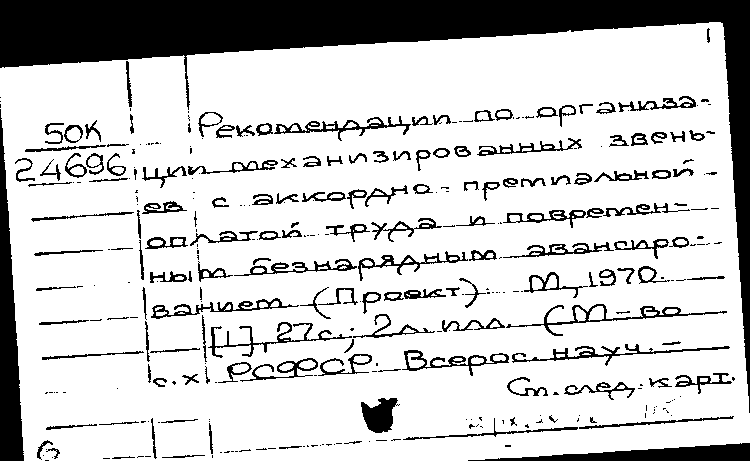 1
50К
24696
Рекомендации по организа-
ции механизированных звень-
ев с аккордно-премиальной
оплатой труда и повремен-
ным безнарядным авансиро-
ванием. (Проект). М., 1970.
[1], 27с.; 2л. илл. (М-во
с.х. РСФСР. Всерос. науч.-
См. след. карт.
6